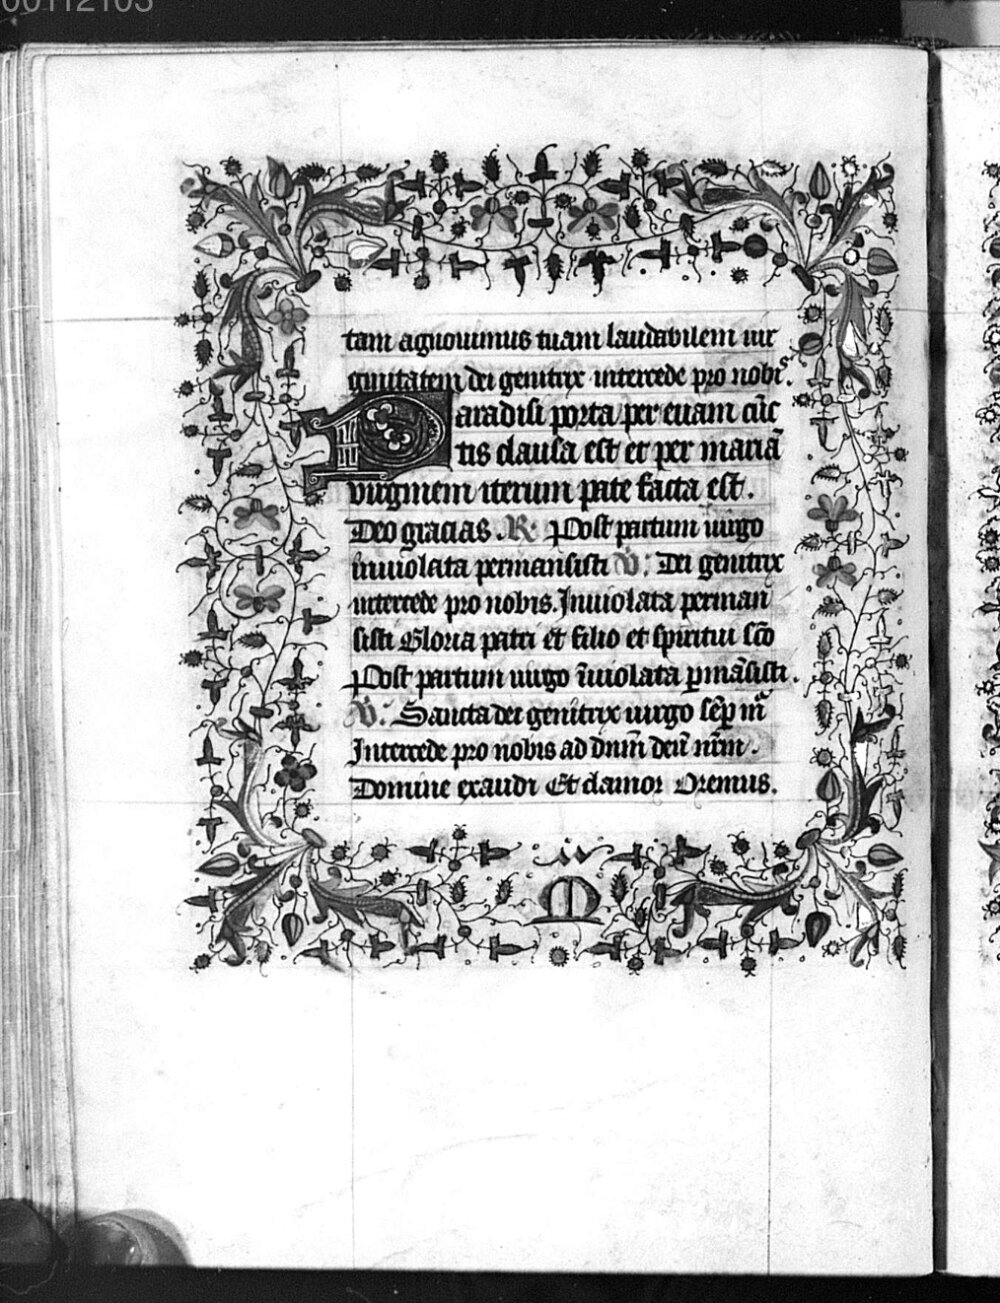 00112103
tam agnouimus tuam laudabilem uir
ginitatem dei genitrix intercede pro nobis.
Paradisi porta per euam cūc
tis clausa est et per mariā
virginem iterum pate facta est.
Deo gracias. R: Post partum uirgo
inuiolata permansisti V: Dei genitrix
intercede pro nobis. Inuiolata perman
sisti Gloria patri et filio et spiritui sc̄o
Post partum uirgo īuiolata ꝑmāsisti.
V: Sancta dei genitrix uirgo sēp mͣ
Intercede pro nobis ad dn̄m deū nr̄m.
Domine exaudi Et clamor Oremus.
M